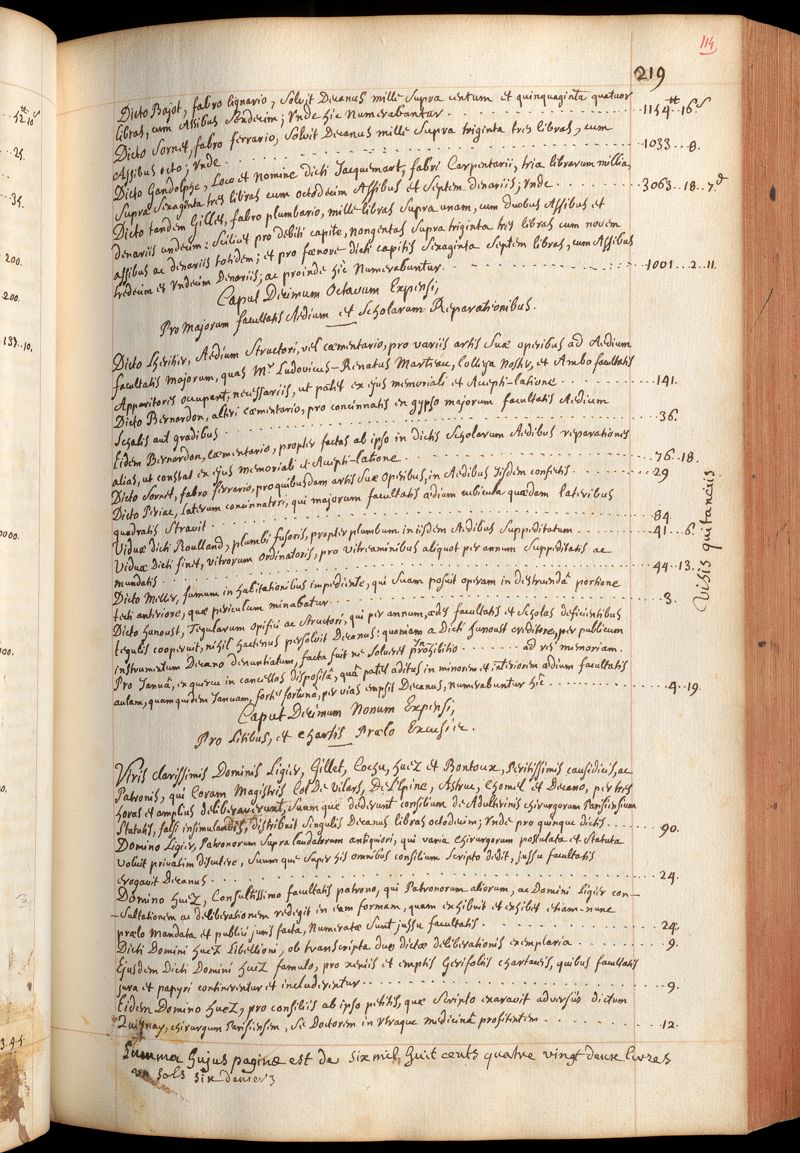 114
219
Dicto Bajot, fabro lignario, solvit Decanus mille supra centum et quinquaginta quatuor
libras, cum Assibus sexdecim; Unde hic Numerabuntur . . . 1154 ₶ 16 s
Dicto Sornet, fabro ferrario, solvit Decanus mille supra triginta tres libras, cum
Assibus octo; Unde . . . 1033 . . 8.
Dicto Gandolphe, Loco et nomine dicti Jacquemart, fabri Carpentarii, tria librarum millia,
supra sexaginta tres libras cum octodecim Assibus et septem denariis; Unde . . . 3063 . . 18 . . 7 d
Dicto tandem Gillet, fabro plumbario, mille libras supra unam, cum duobus Assibus et
denariis undecim: scilicet pro debiti capite, nongentas supra triginta tres libras cum novem
assibus ac denariis totidem; et pro foenore dicti capitis sexaginta septem libras, cum Assibus
tredecim et Undecim Denariis; ac proinde hic Numerabuntur . . . 1001 . . 2 . . 11.
Caput Decimum Octavum Expensi,
Pro Majorum facultatis Aedium et Scholarum Reparationibus.
Dicto Lheritier, Aedium Structori, vel caementario, pro variis artis suae operibus ad Aedium
facultatis Majorum, quas Mr Ludovicus-Renatus Marteau, Collega Noster, et Ambo facultatis
Apparitores occupant, necessariis, ut patet ex ejus memoriali et Accepti-latione . . . 141.
Dicto Bernardon, alteri caementario, pro concinnatis en gypso majorum facultatis Aedium
Scalis aut gradibus . . . 36.
Eidem Bernardon, caementario, propter factas ab ipso in dictis Scholarum Aedibus reparationes
alias, ut constat ex ejus memoriali et Accepti-latione . . . 76 . 18.
Dicto Sornet, fabro ferrario, pro quibusdam artis suae operibus, in Aedibus iisdem confectis . . . 29
Dicto Periac, laterum concinnatori, qui majorum facultatis aedium cubicula quaedam lateribus
quadratis stravit . . . 84
Viduae dicti Roulland, plumbi fusoris, propter plumbum in iisdem Aedibus suppeditatum . . . 41 . . 6.
Viduae Dicti finet, vitrorum ordinatoris, pro vitreaminibus aliquot per annum suppeditatis ac
mundatis . . . 44 . . 13.
Dicto Meller, fumum in habitationibus impediente, qui suam posuit operam in destruendâ portione
tecti anteriore, quae periculum minabatur . . . 3.
Dicto hunoust, Tegularum opifici ac structori, qui per annum, aedes facultatis et scholas deficientibus
tegulis cooperuit, nihil hactenus persolvit Decanus: quoniam a Dicti hunoust creditore, per publicum
instrumentum Decano denuntiatum, facta fuit ne solveret prohibitio . . . ad rei memoriam.
Pro Januâ, ex quercu in cancellos dispositâ, quâ patet aditus in minorem et interiorem aedium facultatis
aulam, quamquidem Januam, fortè fortunâ, per vias empsit Decanus, numerabuntur hic . . . 4 . . 19.
Visis quitanciis
Caput Decimum Nonum Expensi,
Pro Litibus, et chartis Praelo Excusis.
Viris clarissimis Dominis Ligier, Gillet, Cochu, huez et Bontoux, Peritissimis causidicis, ac
Patronis, qui Coram Magistris Col De Vilars, De L'Epine, Astruc, Chomel et Decano, per tres
horas et amplius deliberaverunt, suumque dederunt consilium de Adulterinis chirurgorum Parisiensium
Statutis, falsi insimulandis, distribuit singulis Decanus libras octodecim; Unde pro quinque dictis . . . 90.
Domino Ligier, Patronorum supra laudatorum antiquiori, qui varia chirurgorum postulata et Statuta
voluit privatim discutere, suumque super his omnibus consilium scripto dedit, jussu facultatis
erogavit Decanus . . . 24.
Domino huez, Consultissimo facultatis patrono, qui Patronorum aliorum, ac Domini Ligier con-
-sultationem ac deliberationem redegit in eam formam, quam exhibuit et exhibet etiam-nunc
praelo mandata et publici juris facta, Numeratae sunt jussu facultatis . . . 24.
Dicti Domini huez Libellioni, ob transcripta duo dictae deliberationis exemplaria . . . 9.
Ejusdem Dicti Domini huez famulo, pro xeniis et emptis Gerifoliis chartaceis, quibus facultatis
jura et papyri continerentur et includerentur . . . 9.
Eidem Domino huez, pro consiliis ab ipso petitis, quae scripto exaravit adversùs dictum
Quesnay, chirurgum Parisiensem, se Doctorem in Utraque medicinâ profitentem . . . 12.
Summa hujus paginae est de six mil huit cents quatre vingt deux livres
un sols six deniers